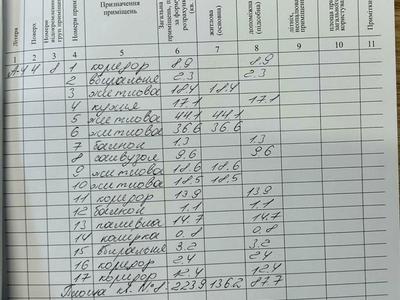 Літера
Поверх
Номери
відокремлених
груп приміщень
Номери прим
Призначення
приміщень
Загальна
за формул
розрахунку
(кв.
житлова
(основна)
допоміжна
(підсобна)
літніх,
Примітка
1 2 3 4 5 6 7 8 9 10 11
А 4 8 1 коридор 8.9 8.9
2 вбиральня 2.3 2.3
3 житлова 18.4 18.4
4 кухня 17.1 17.1
5 житлова 44.1 44.1
6 житлова 36.6 36.6
7 балкон 1.3 1.3
8 санвузол 9.6 9.6
9 житлова 18.6 18.6
10 житлова 18.5 18.5
11 коридор 13.9 13.9
12 балкон 1.1 1.1
13 14.7 14.7
14 комірка 0.8 0.8
15 вбиральня 3.2 3.2
16 коридор 2.4 2.4
17 коридор 12.4 12.4
Площа кв. №8 223.9 136.2 87.7